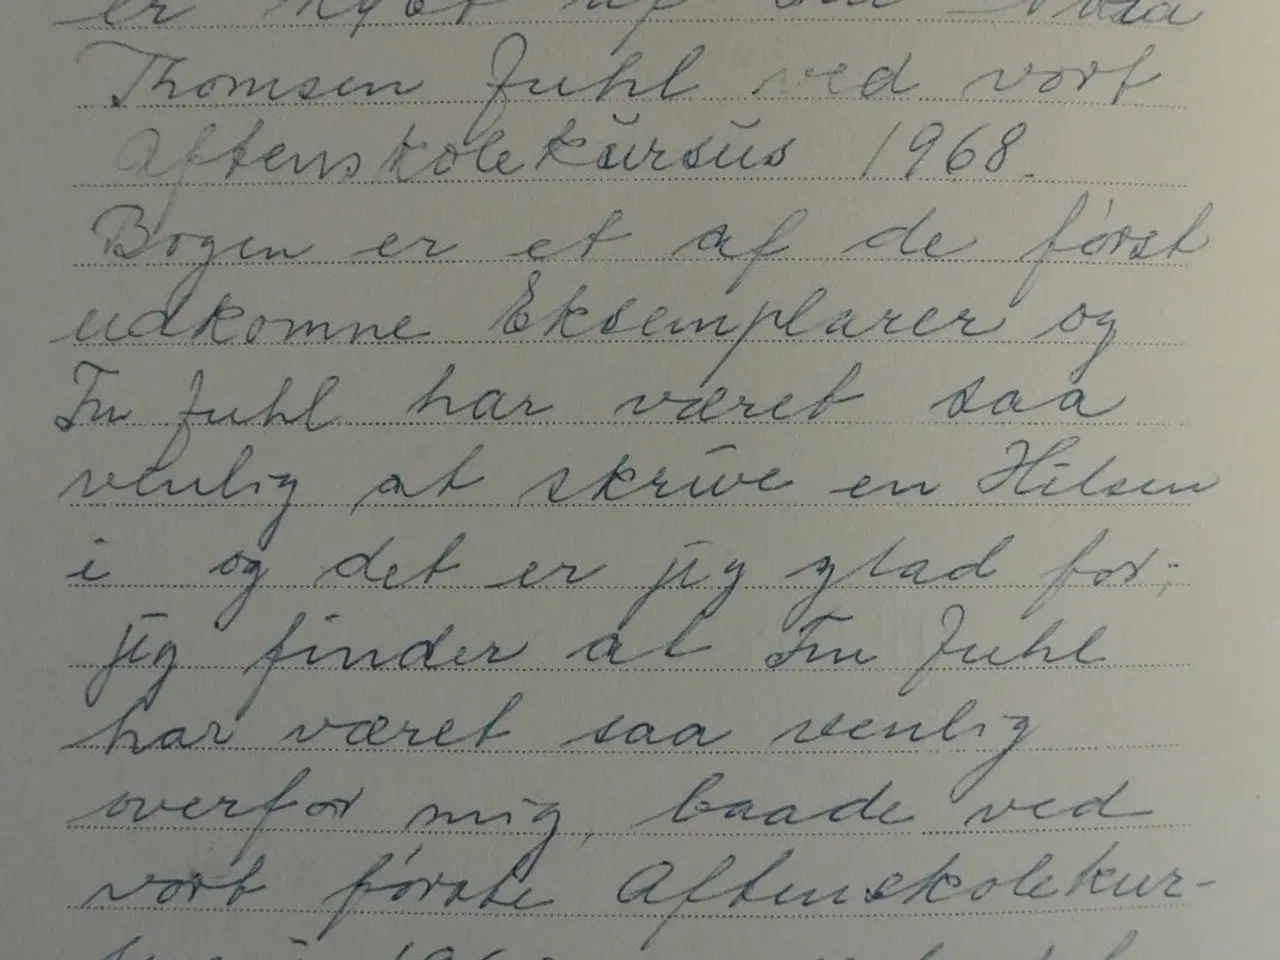 er købt af
Thomsen Juhl ved vort
Aftenskolekursus 1968.
Bogen er et af de først
udkomne Eksemplarer og
Fru Juhl har været saa
venlig at skrive en Hilsen
i og det er jeg glad for;
jeg finder at Fru Juhl
har været saa venlig
overfor mig, baade ved
vort første Aftenskolekur-